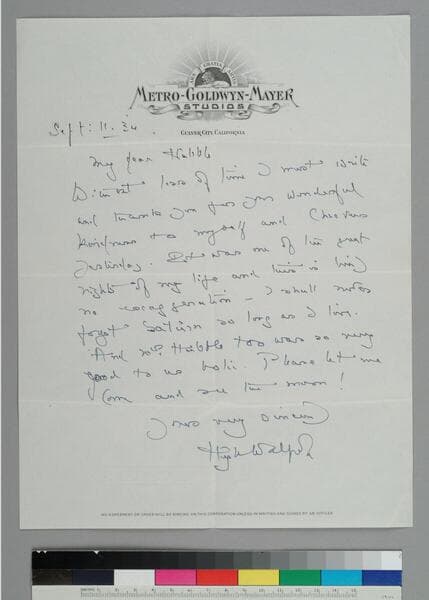 ARS GRATIA ARTIS
METRO-GOLDWYN-MAYER
STUDIOS
CULVER CITY, CALIFORNIA
Sept: 11. 34.
My dear Hubble
Without loss of time I must write
and thank you for your wonderful
kindness to myself and Cheevers
yesterday. It was one of the great
nights of my life and there is
no exaggeration - I shall never
forget Saturn so long as I live.
And Mrs Hubble too was so very
good to us both. Please let me
come and see the moon!
Yours very sincerely
Hugh Walpole
NO AGREEMENT OR ORDER WILL BE BINDING ON THIS CORPORATION UNLESS IN WRITING AND SIGNED BY AN OFFICER